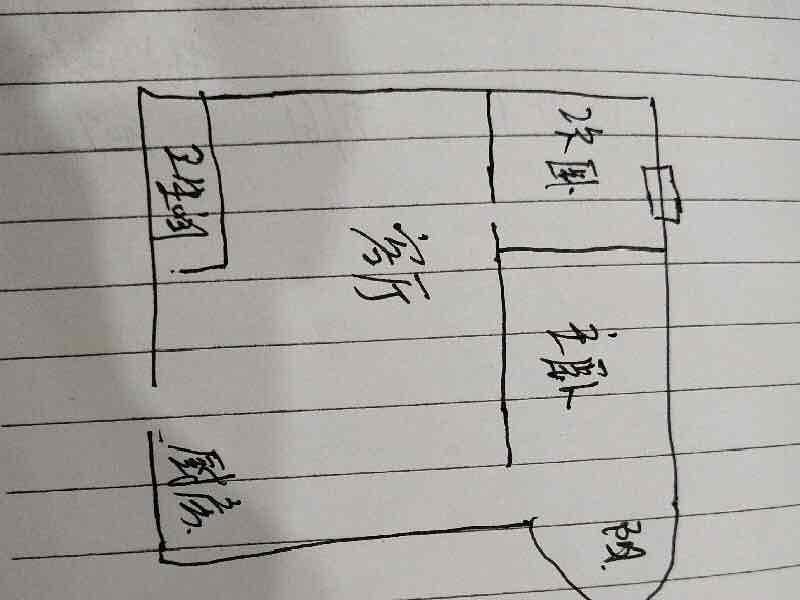 次卧
卫生间
客厅
主卧
厨房
阳